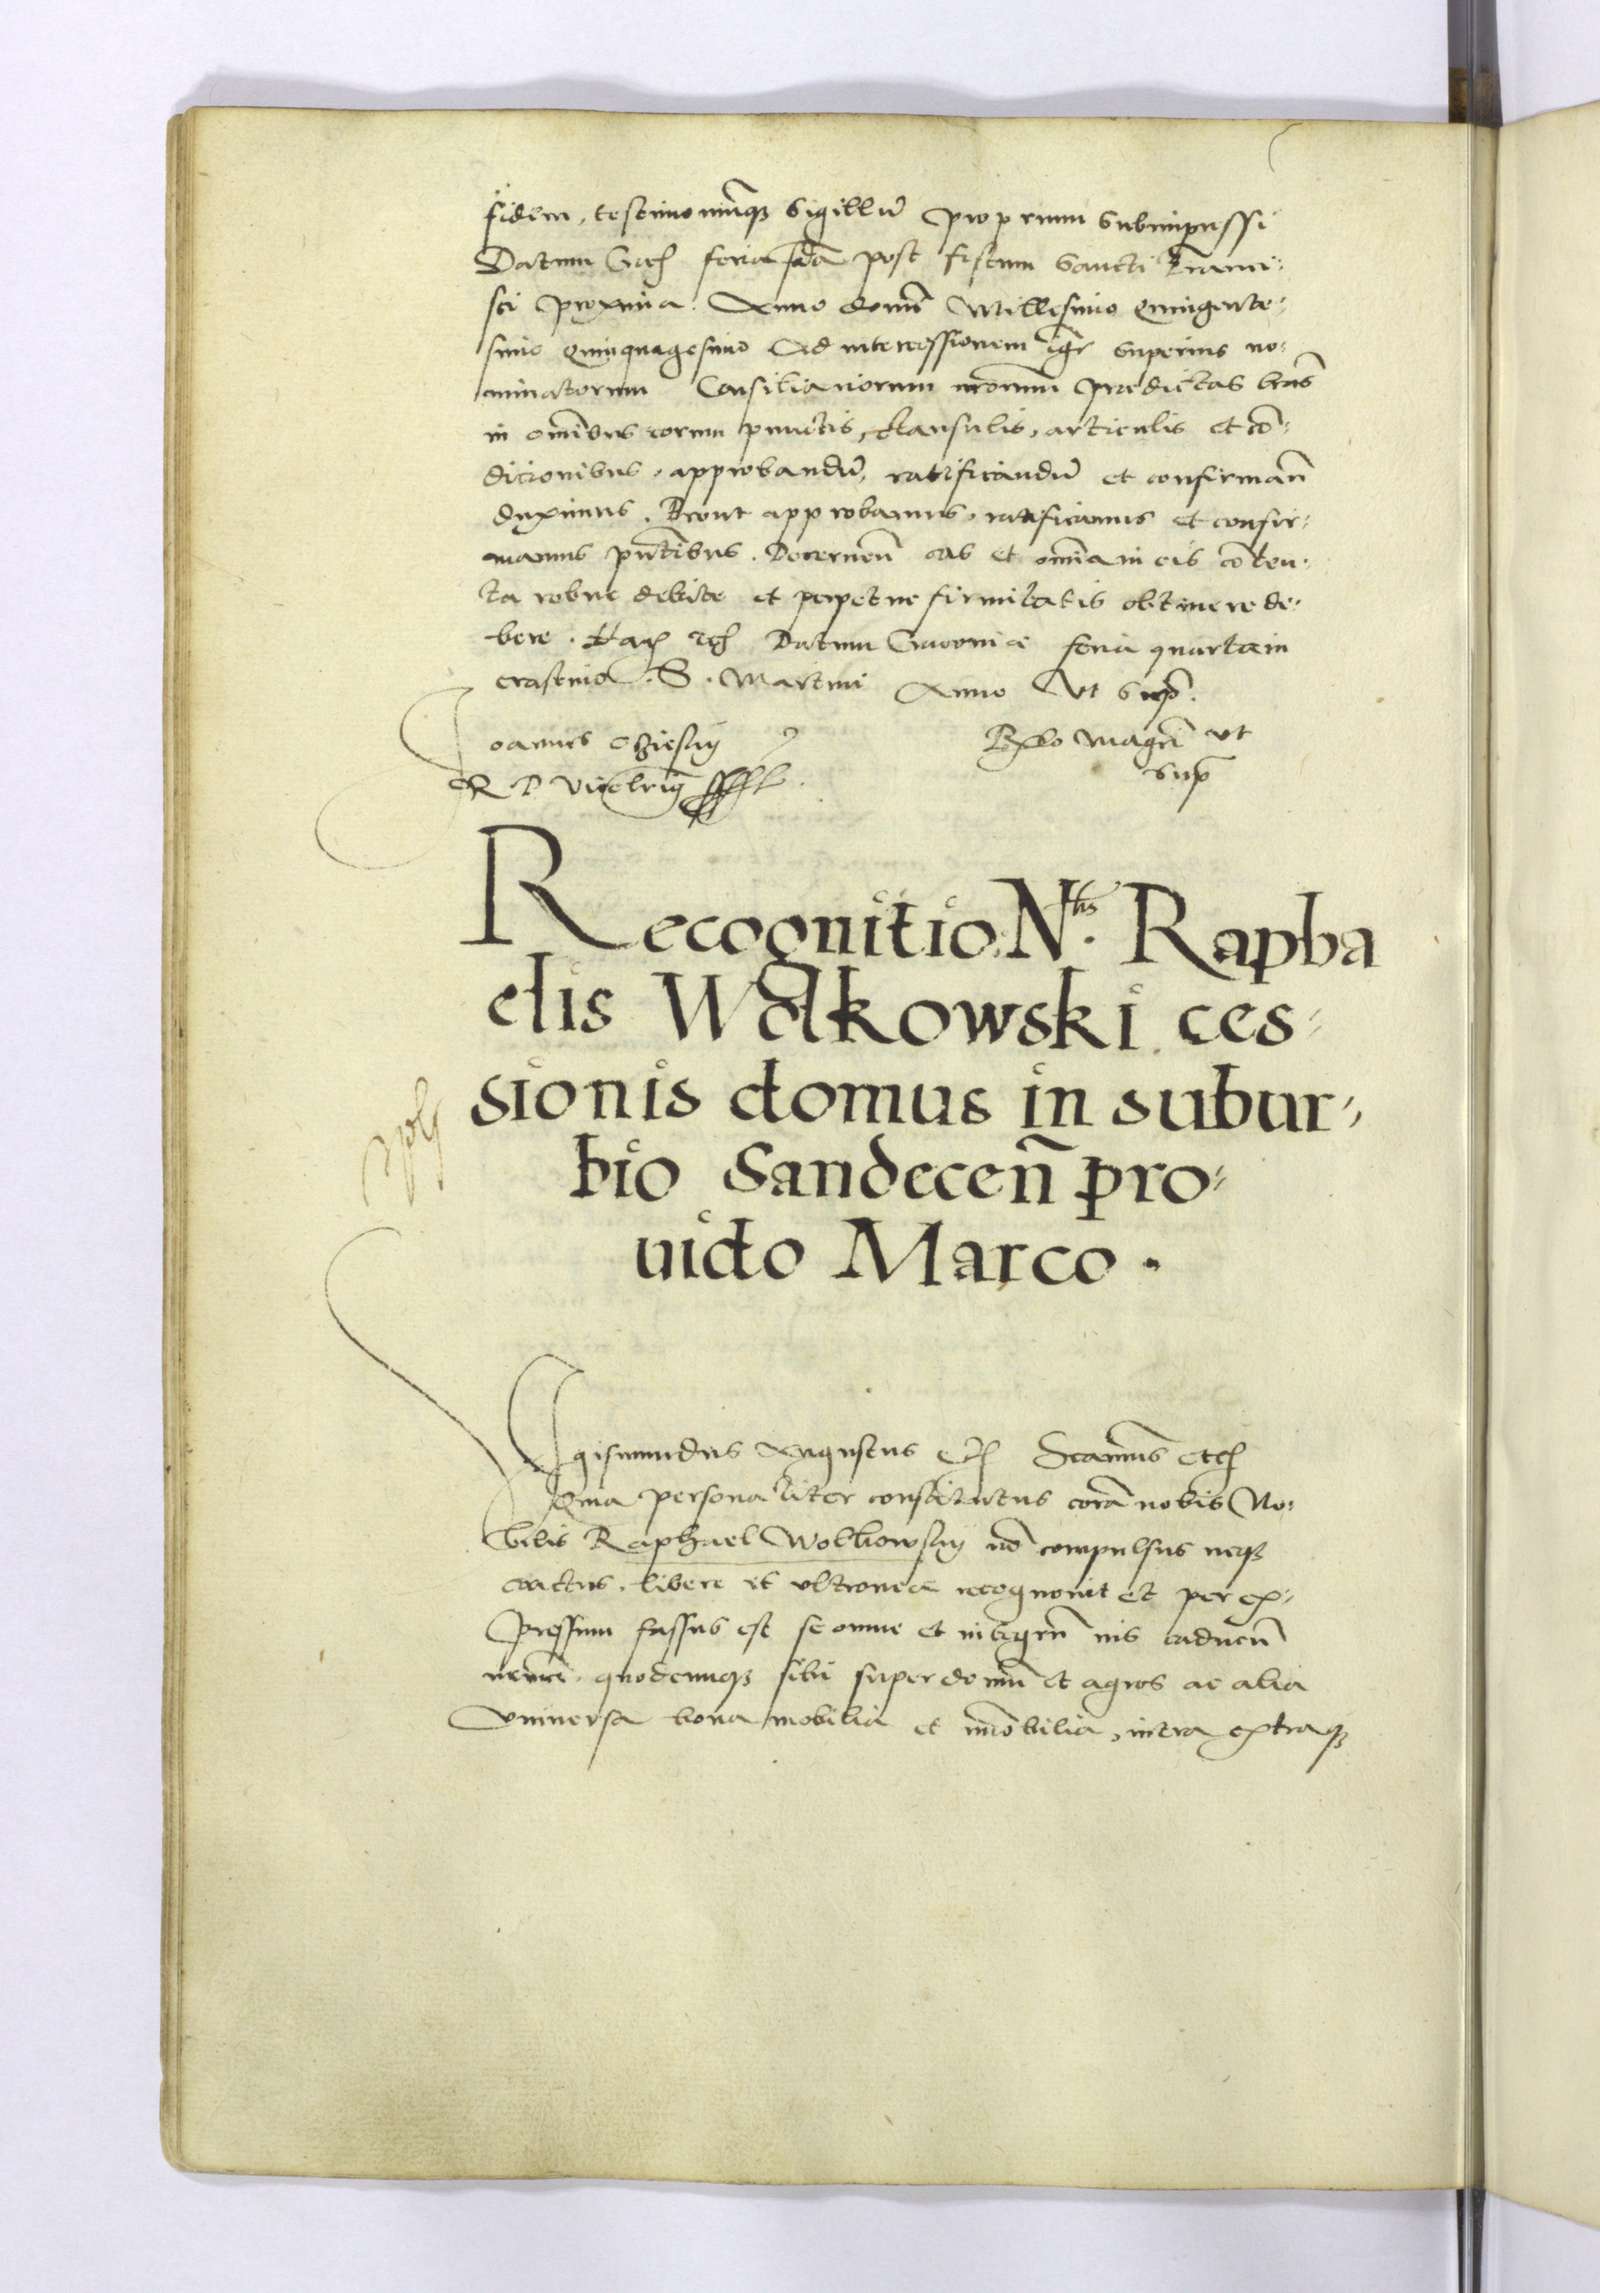 fidem, testimoniumq3 Sigillũ proprium Subimpressi
Datum Crac. feria sc̃da post festum Sancti Franci-
sci proxima. Anno domĩ Millesimo Quingente-
simo Quinquagesimo Ad intercessionem igr̃ Superius no-
minatorum Consiliariorum nr̃orum Praedictas lr̃as
in om̃ibus eorum punctis, clausulis, articulis et cõ-
dicionibus, approbandũ, ratificandũ et confirmañ
duximus, Prout approbamus, ratificamus et confir-
mamus pñtibus. Decerneñ eas et om̃ia in eis cõten-
ta robur debite et perpetue firmitatis obtinere de-
bere. Har. etc. Datum Cracovie feria quarta in
crastino .S. Martini Anno Ut Sup̃.
Joannes Ocziesky
R P Vicecancellarius
R̃lo Magci ut
sup̃
Recognitio N.lis Rapha
elis Wolkowski ces-
sionis domus in subur-
bio Sandeceñ pro-
uido Marco.
Sigismundus Augustus etc. Significamus etc.
Quia personaliter constitutus corã nobis No-
bilis Raphael Wolkowsky nõ compulsus neq3
coactus, libere et ultronee recognovit et per ex-
pressum fassus est se omne et integrũ ius caducũ
quodcunq3 sibi super domũ et agros ac alia
Universa bona mobilia et im̃obilia, intra extraq3